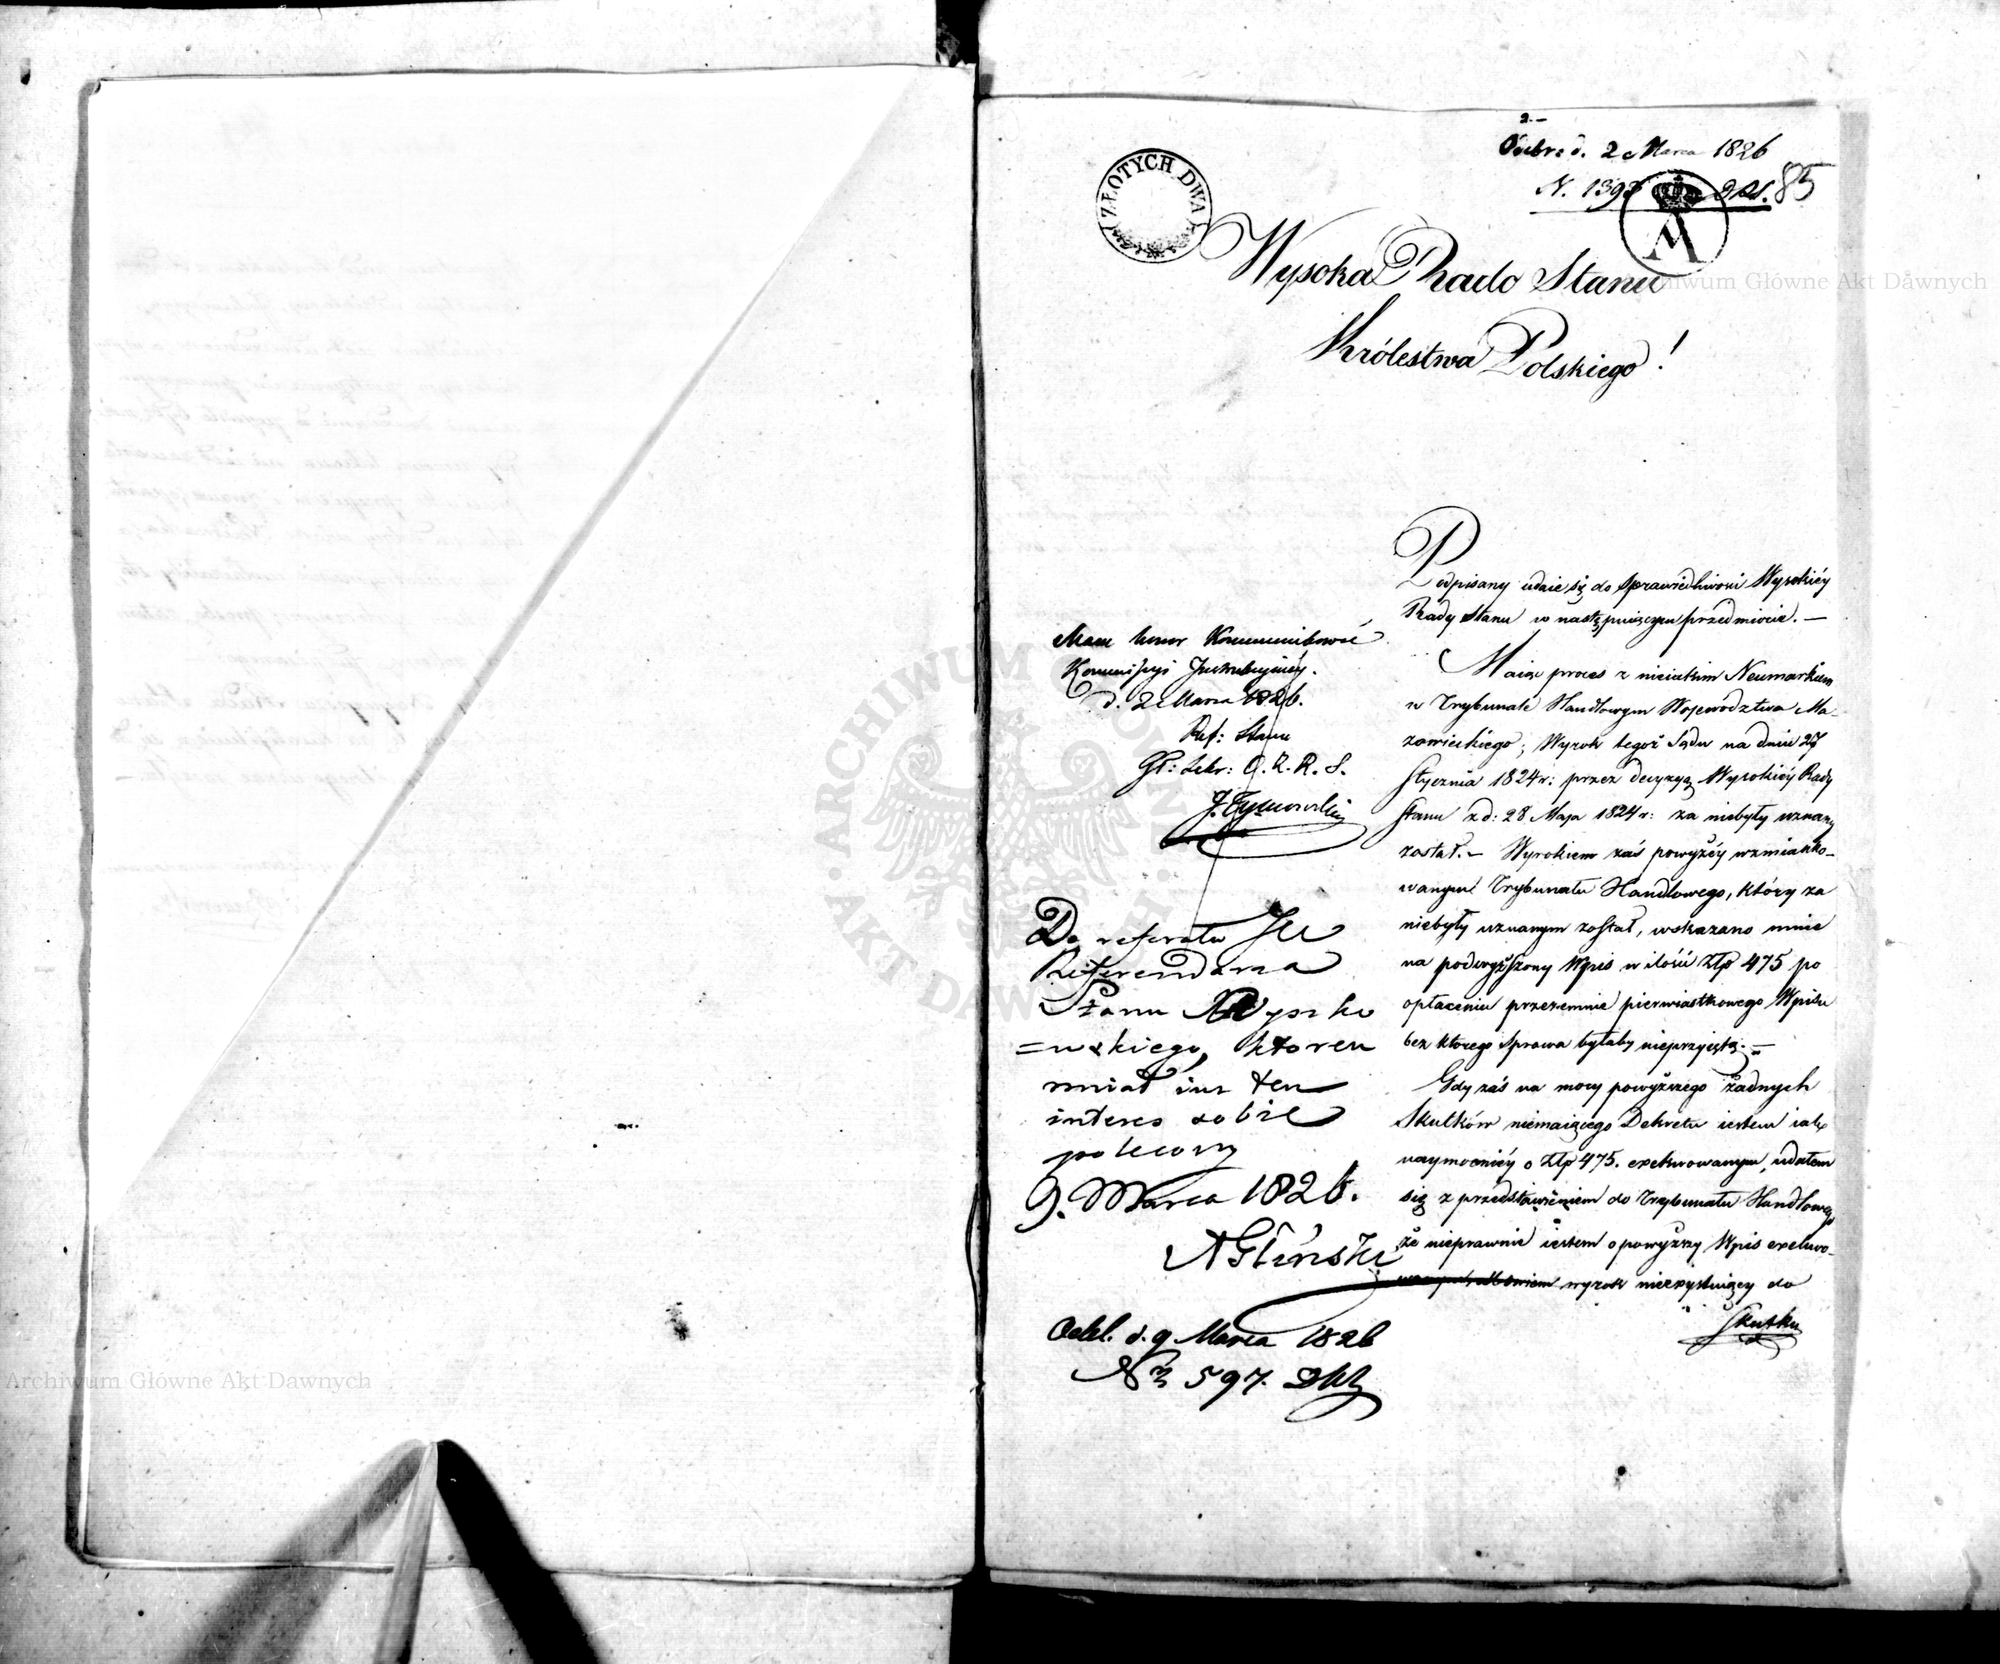 2.-
Odebr: d. 2 Marca 1826
N. 1393
85
ZŁOTYCH DWA
Wysoka Rado Stanu
Królestwa Polskiego!
Podpisany udaie się do Sprawiedliwości Wysokiéy
Rady Stanu w następuiącym przedmiocie. —
Maiąc proces z nieiakim Neumarkiem
w Trybunale Handlowym Województwa Ma-
zowieckiego; Wyrok tegoż Sądu na dniu 27
Stycznia 1824 r: przez decyzyą Wysokiéy Rady
Stanu z d: 28 Maja 1824 r: za niebyły uznany
został. — Wyrokiem zaś powyżéy wzmianko-
wanym Trybunału Handlowego, który za
niebyły uznanym został, wskazano mnie
na podwyższony Wpis w ilości Złp 475 po
opłaceniu przezemnie pierwiastkowego Wpisu
bez którego Sprawa byłaby nieprzyięta. —
Gdy zaś na mocy powyższego żadnych
Skutków niemaiącego Dekretu iestem iak
naymocniéy o Złp 475. exekwowanym, udałem
się z przedstawieniem do Trybunału Handlowego
że nieprawnie iestem o powyższy Wpis exekwo-
wyrok nieexystuiący do
Skutku
Mam honor Kommunikować
Kommissyi Instrukcyinéy.
d. 2 Marca 1826.
Ref: Stanu
J. Tymowski
Do referatu JW
Referendarza
Stanu Wyszko
=wskiego, któren
miał iuż ten
interes sobie
polecony
9. Marca 1826.
A Gliński
Odeb. d. 9 Marca 1826
Nr 597.
Archiwum Główne Akt Dawnych
ARCHIWUM GŁÓWNE · AKT DAWNYCH ·
Archiwum Główne Akt Dawnych